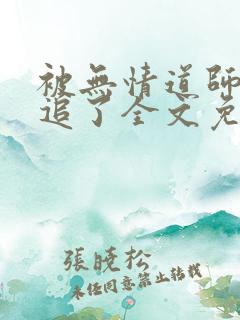 被無情道師
追了全文免
張曉松
未任同意禁止转载